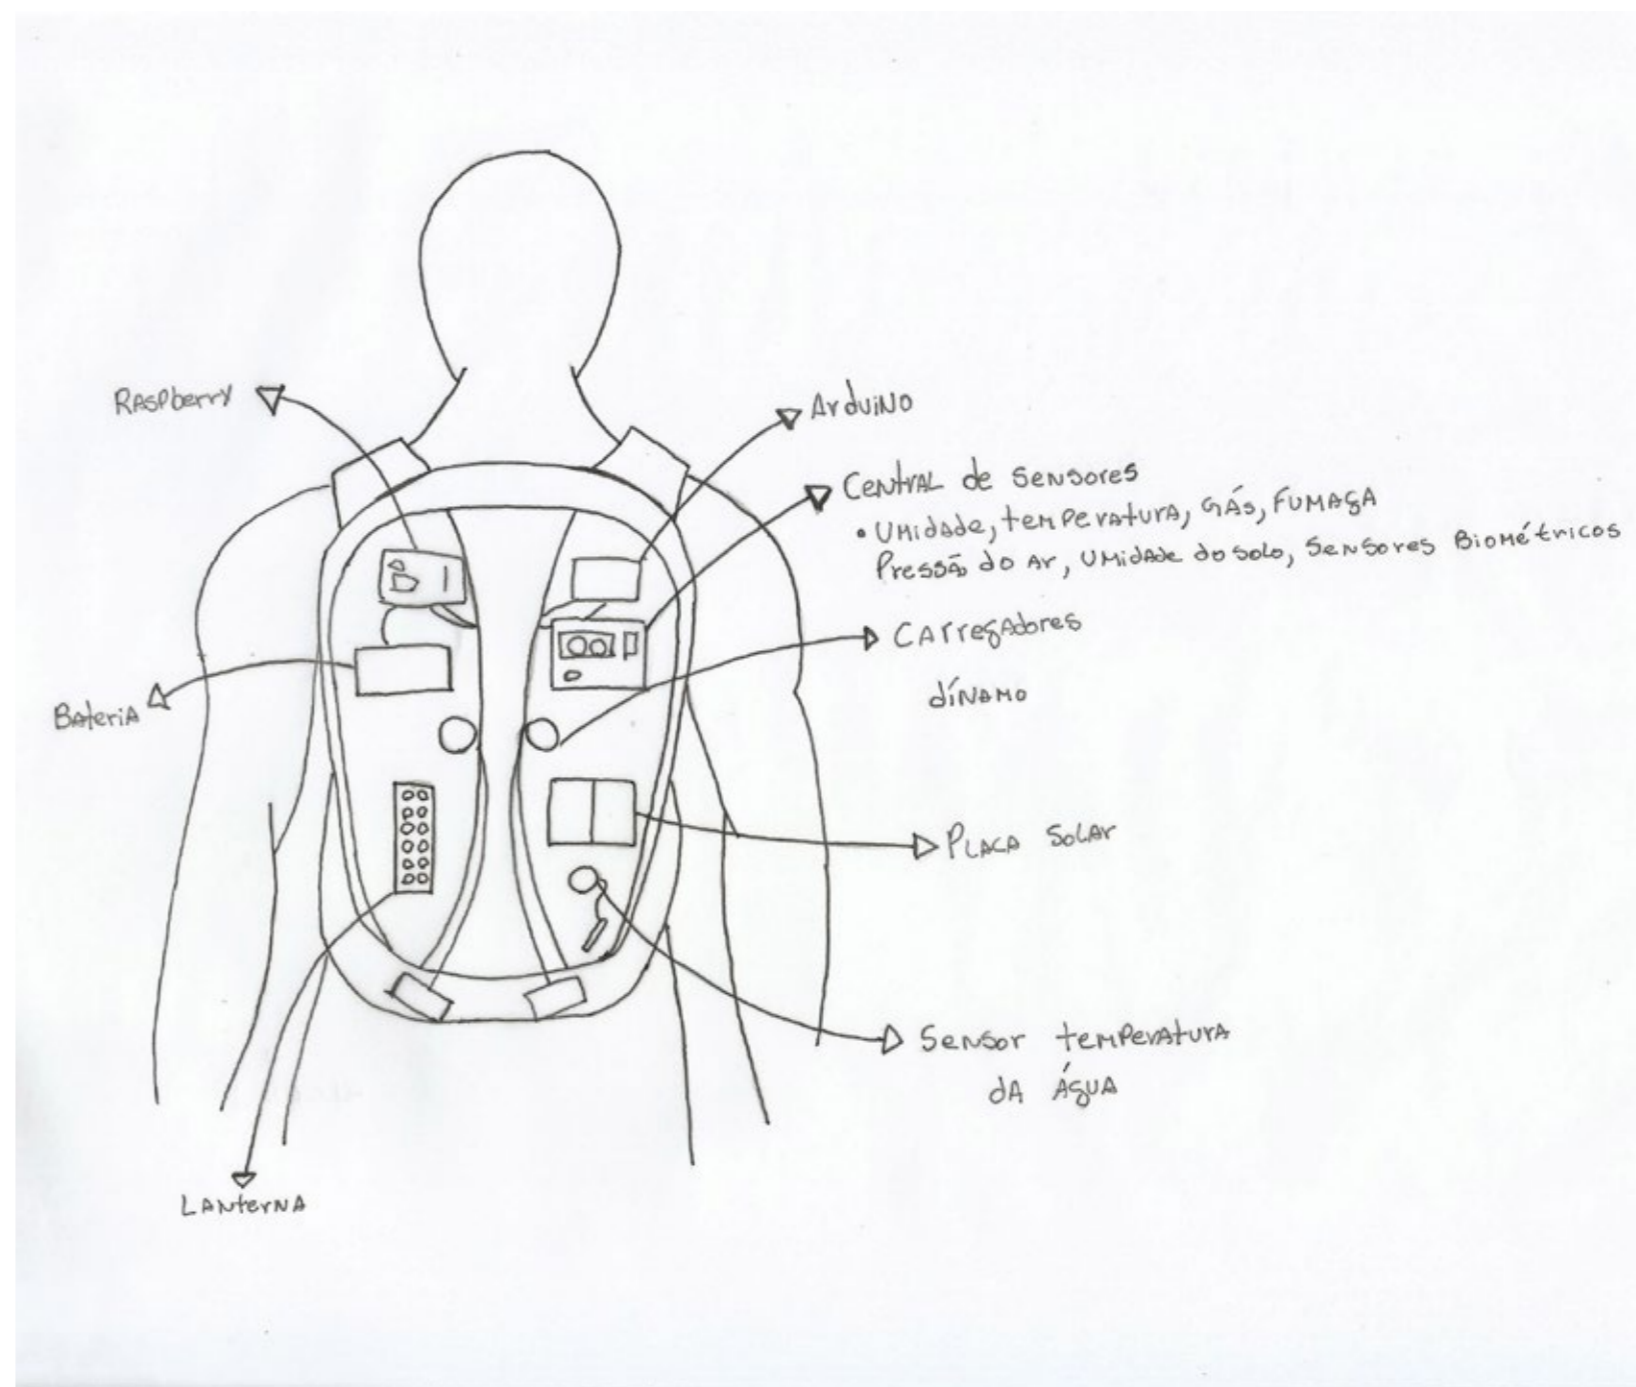 Raspberry
Arduino
Central de sensores
• Umidade, temperatura, Gás, Fumaça
Pressão do Ar, Umidade do solo, Sensores Biométricos
Carregadores
dínamo
Bateria
Placa Solar
Sensor temperatura
da Água
Lanterna